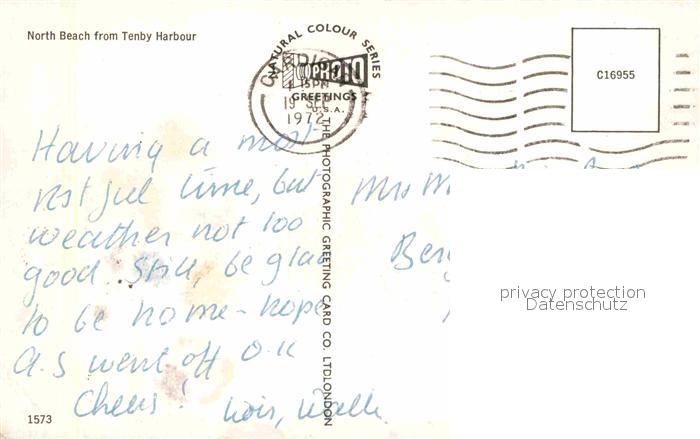 North Beach from Tenby Harbour
NATURAL COLOUR SERIES
PHOTO
GREETINGS
U.S.A.
15PM
19 SEP
1972
C16955
Having a most
restful time, but
weather not too
good. Still, be glad
to be home - hope
A.S went off O.K
Cheers!
THE PHOTOGRAPHIC GREETING CARD CO. LTD LONDON
Mrs M
Ber
privacy protection
Datenschutz
1573